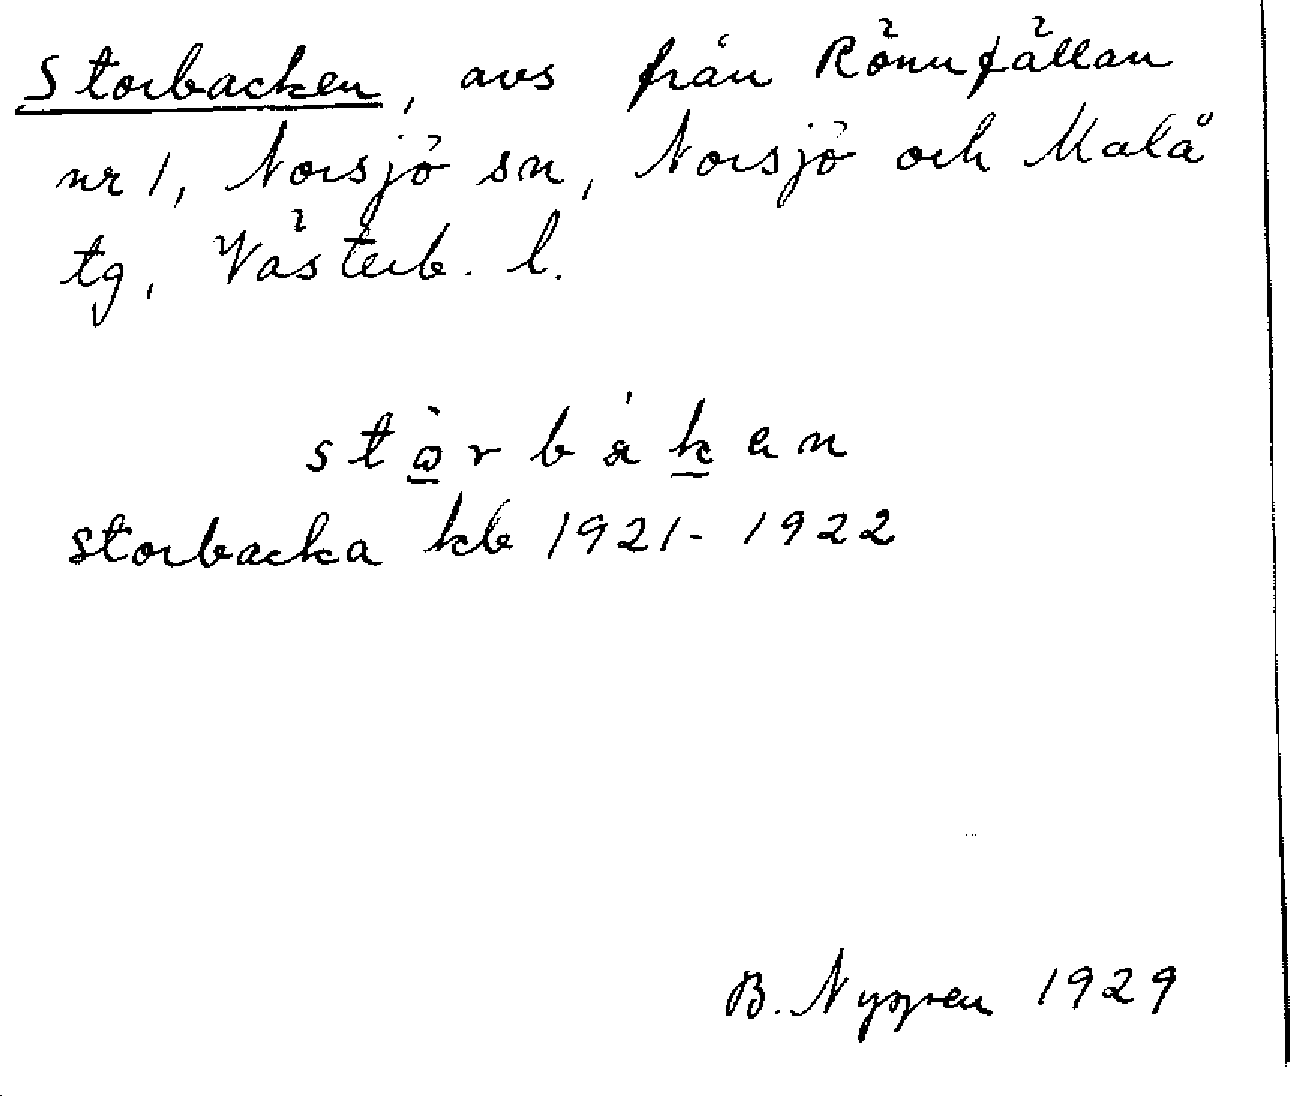 Storbacken, avs från Rönnfällan
nr 1, Norsjö sn, Norsjö och Malå
tg, Västerb. l.
stɷ̀rbákan
storbacka kb 1921-1922
B. Nygren 1929